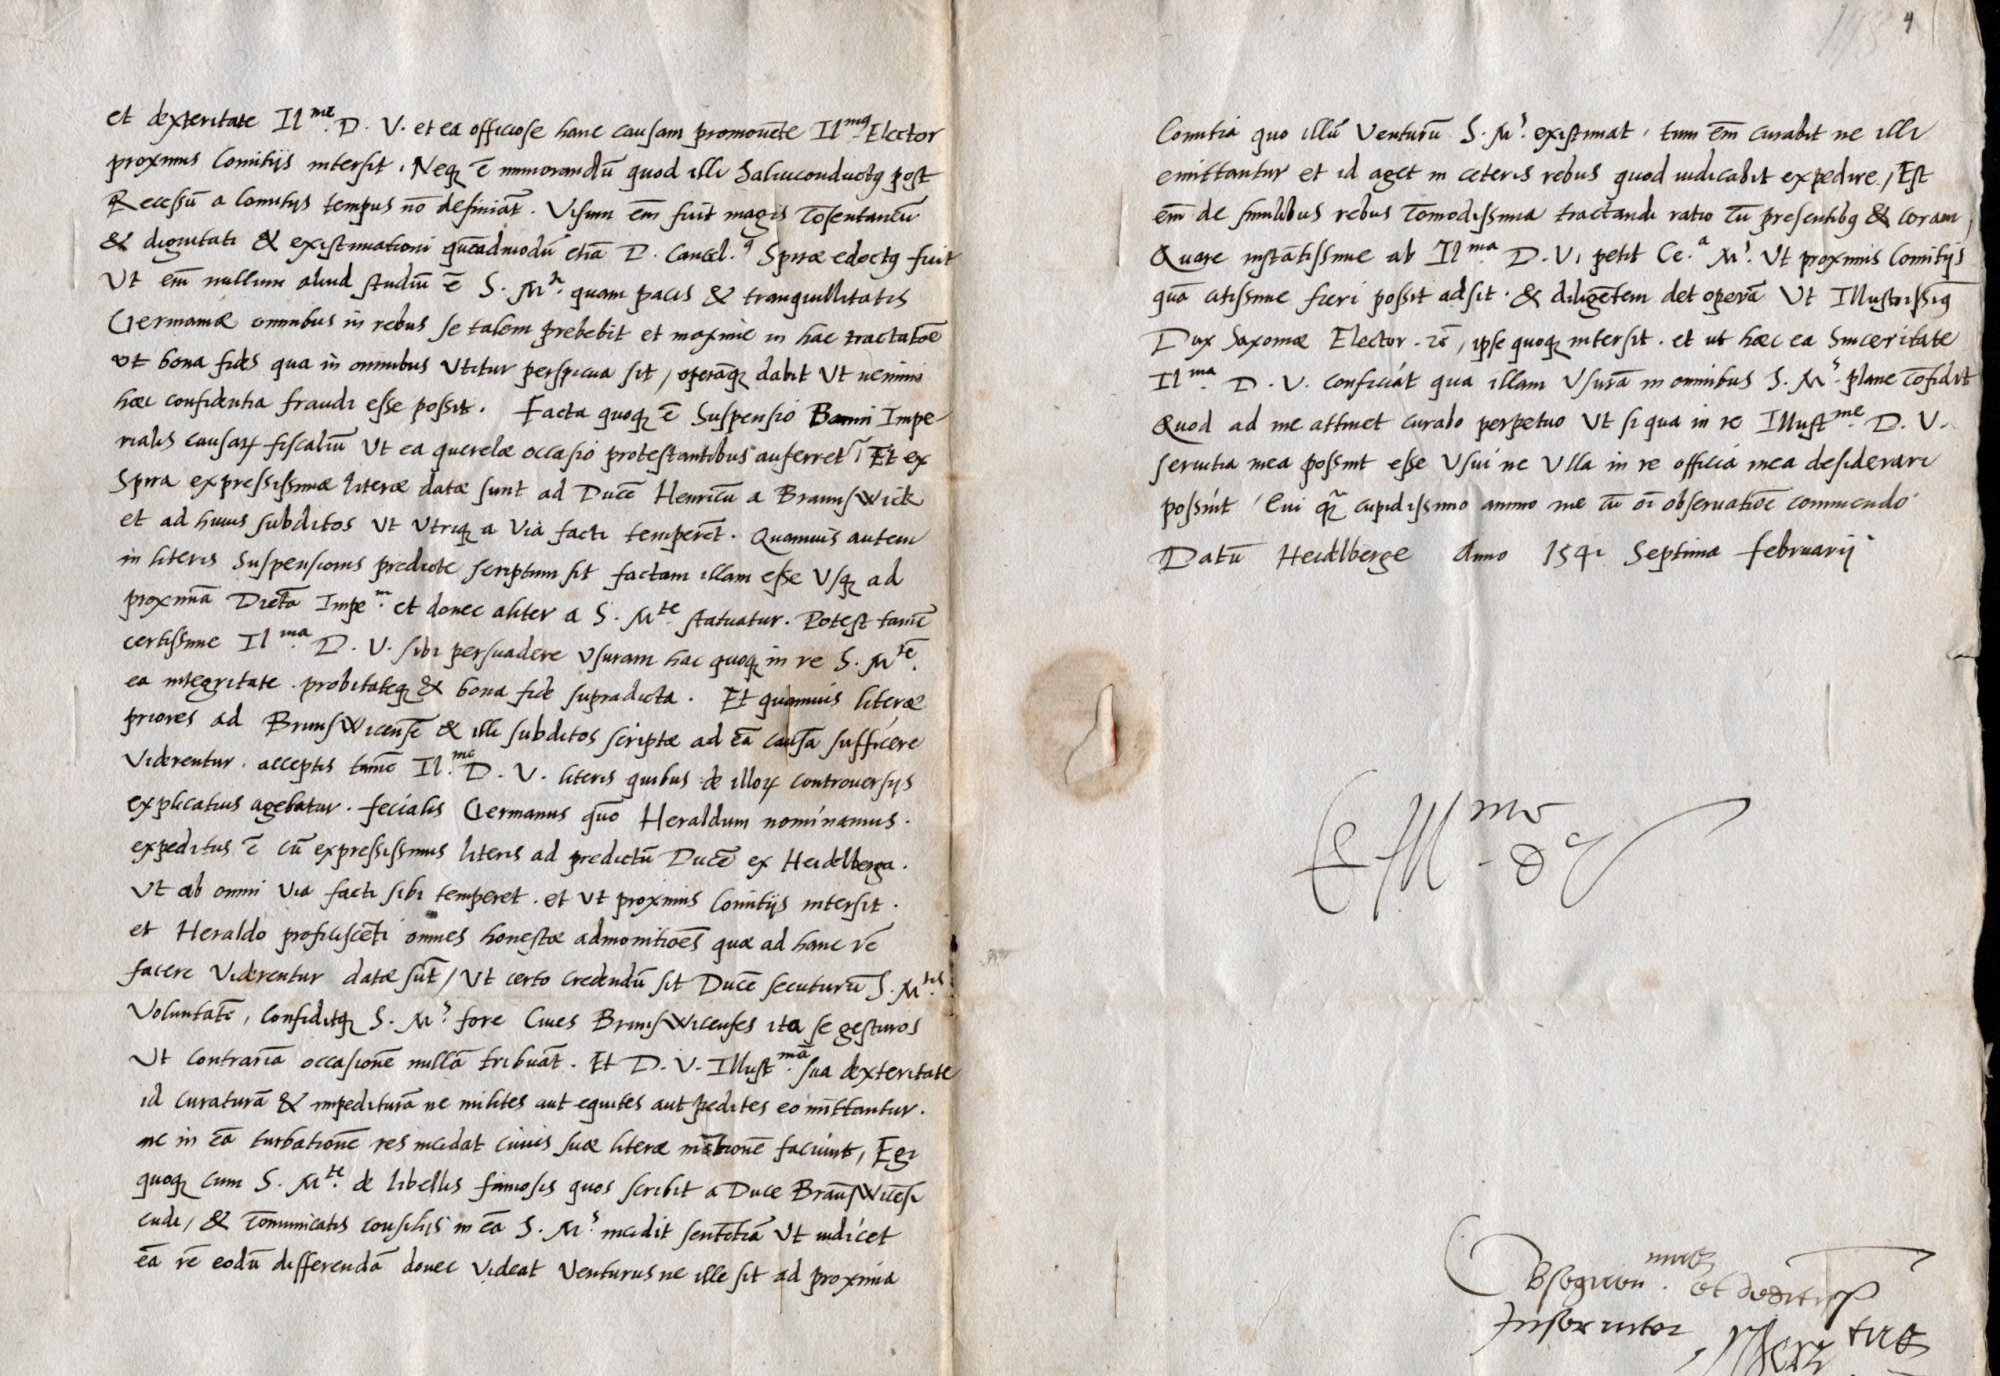 et dexteritate Il.me D. V. et ea officiose hanc causam promovēte Il.mꝰ Elector
proximis Comitijs intersit. Neqꝫ ē mirrorandū quod illi Salviconductꝰ post
Recessū a Comitijs tempus nō definiāt. Visum em̄ fuit magis cōsentaneū
& dignitati & existimationi quēadmodū etiā D. Cancel. Spiræ edoctꝰ fuit
Ut em̄ nullum aliud studiū ē S. M.ti quam pacis & tranquillitatis
Germaniæ omnibus in rebus se talem prebebit et maxime in hac tractatiōe
ut bona fides qua in omnibus Utitur perspicua sit, operāqꝫ dabit Ut nemini
hæc confidentia fraudi esse possit. Facta quoqꝫ ē Suspensio Banni Impe-
rialis causaꝝ fiscaliū Ut ea querelæ occasio protestantibus auferret̄, Et ex
Spira expressissimæ literæ datæ sunt ad Ducē Henricū a BraunsWick
et ad huius subditos Ut Utriqꝫ a Via facti temperēt. Quamvis autem
in literis Suspensionis predicte scriptum sit factam illam esse Usqꝫ ad
proximā Dietā Impe.m et donec aliter a S. M.te statuatur. Potest tamē
certissime Il.ma D. V. sibi persuadere Usuram hac quoqꝫ in re S. M.tē
ea integritate probitateqꝫ & bona fide supradicta. Et quamvis literæ
priores ad BrunsWicensē & illi subditos scriptæ ad eā causā sufficere
Viderentur. acceptis tamē Il.me D. V. literis quibus de illoꝝ controversijs
explicatius agebatur. fecialis Germanus quē Heraldum nominamus.
expeditus ē cū expressissimis literis ad predictū Ducē ex Heidelberga.
Ut ab omni Via facti sibi temperet. et Ut proximis Comitijs intersit.
et Heraldo proficiscēti omnes honestæ admonitiōes quæ ad hanc rē
facere Viderentur datæ sūt, Ut certo credendū sit Ducē secuturū S. M.tis
Voluntatē, Confiditqꝫ S. M.s fore Cives BrunsWicenses ita se gesturos
Ut contrariā occasionē nullā tribuāt. Et D. V. Illust.mā sua dexteritate
id curaturā & impediturā ne milites aut equites aut pedites eo mittantur.
ne in eā turbationē res incidat cuius suæ literæ mētionē faciunt, Egi
quoqꝫ cum S. M.te de libellis famosis quos scribit a Duce BraūsWicēsi
cudi, & cōmunicatis consilijs in eā S. M.s incidit sentētiā Ut iudicet
eā rē eodū differendā donec Videat Venturus ne ille sit ad proxima
Comitia quo illū Venturū S. M.s existimat, tum em̄ curabit ne illi
emittantur et id aget in ceteris rebus quod iudicabit expedire, Est
em̄ de similibus rebus cōmodissima tractandi ratio cū presentibꝰ & coram,
Quare instātissime ab Il.ma D. V. petit Ce.a M.s Ut proximis Comitijs
quā citissime fieri possit adsit. & diligētem det operā Ut Illustrissimꝰ
Dux Saxoniæ Elector. rc̄, ipse quoqꝫ intersit. et ut hæc ea Sinceritate
Il.ma D. V. conficiāt qua illam Usurā in omnibus S. M.s plane cōfidit
Quod ad me attinet curabo perpetuo Ut si qua in re Illust.me D. V.
servitia mea possint esse Usui ne Ulla in re officia mea desiderari
possint, Cui qr̄ cupidissimo animo me cū oī observatiōe commendo.
Datū Heidelberge Anno 1541 Septima februarij
et
Inservitor